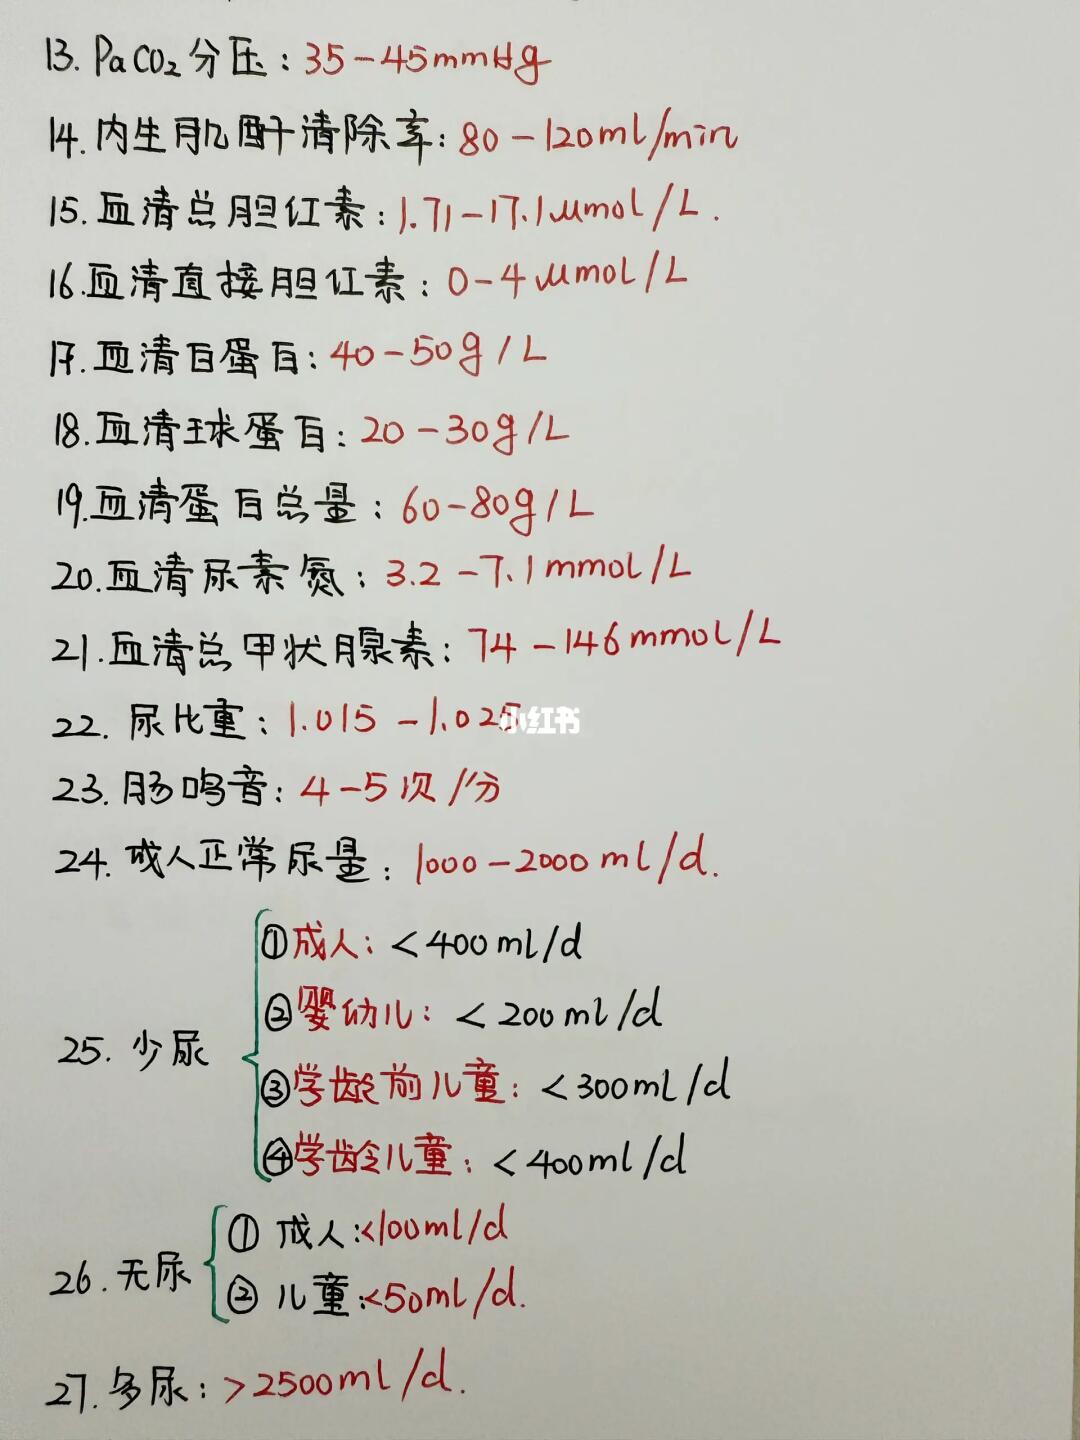 13. PaCO₂分压：35-45mmHg
14. 内生肌酐清除率：80-120ml/min
15. 血清总胆红素：1.71-17.1μmol/L.
16. 血清直接胆红素：0-4μmol/L
17. 血清白蛋白：40-50g/L
18. 血清球蛋白：20-30g/L
19. 血清蛋白总量：60-80g/L
20. 血清尿素氮：3.2-7.1mmol/L
21. 血清总甲状腺素：74-146mmol/L
22. 尿比重：1.015-1.025
小红书
23. 肠鸣音：4-5次/分
24. 成人正常尿量：1000-2000ml/d.
25. 少尿
①成人：<400ml/d
②婴幼儿：<200ml/d
③学龄前儿童：<300ml/d
④学龄儿童：<400ml/d
26. 无尿
① 成人：<100ml/d
② 儿童：<50ml/d.
27. 多尿：>2500ml/d.